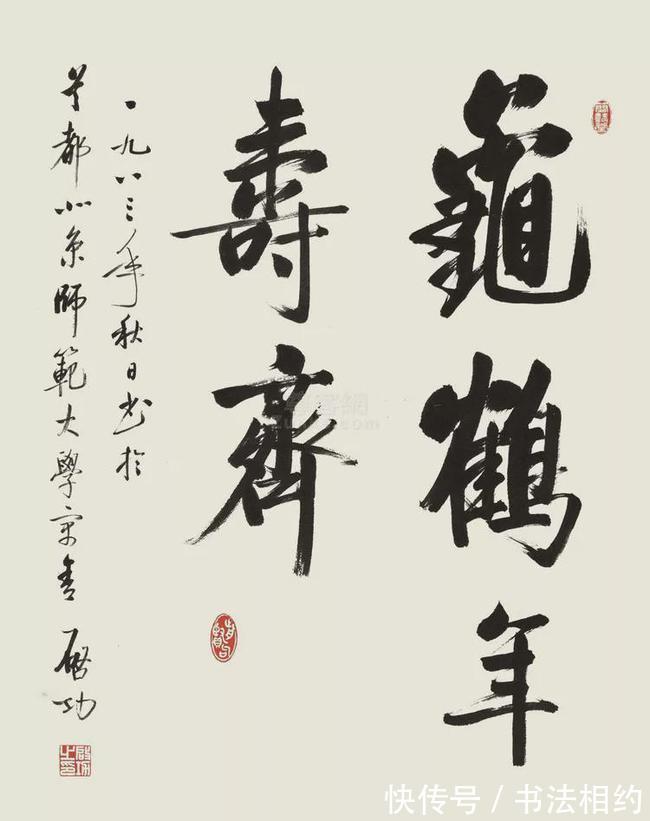 龜鶴年
壽齊
一九八三年秋日書於
首都北京師範大學宿舍 啟功
快传号 / 书法相约